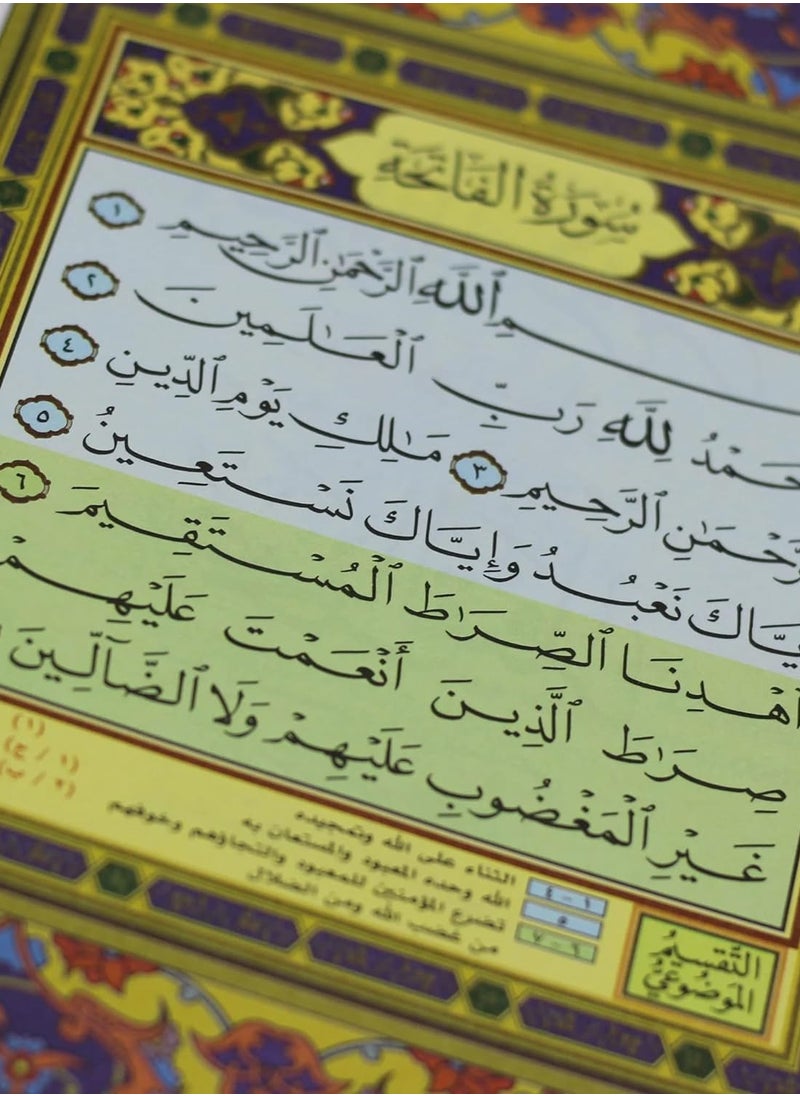 سُورَةُ الفَاتِحَةِ
ـسْمِ ٱللَّهِ ٱلرَّحْمَٰنِ ٱلرَّحِيمِ ١
ـحَمْدُ لِلَّهِ رَبِّ ٱلْعَـٰلَمِينَ ٢
ـرَّحْمَٰنِ ٱلرَّحِيمِ ٣ مَـٰلِكِ يَوْمِ ٱلدِّينِ ٤
ـيَّاكَ نَعْبُدُ وَإِيَّاكَ نَسْتَعِينُ ٥
ٱهْدِنَا ٱلصِّرَٰطَ ٱلْمُسْتَقِيمَ ٦
صِرَٰطَ ٱلَّذِينَ أَنْعَمْتَ عَلَيْهِمْ
غَيْرِ ٱلْمَغْضُوبِ عَلَيْهِمْ وَلَا ٱلضَّآلِّينَ
التَّقسِيمُ
المَوضُوعِيُّ
١ - ٤ الثناء على الله وتمجيده
٥ الله وحده المعبود والمستعان به
٦ - ٧ تضرع المؤمنين للمعبود والتجاؤهم وخوفهم
من غضب الله ومن الضلال
(١)
(١ / ج)
(٢ / ب)